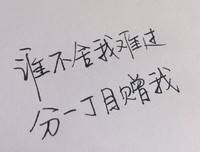 谁不舍我难过
分一丁目赠我